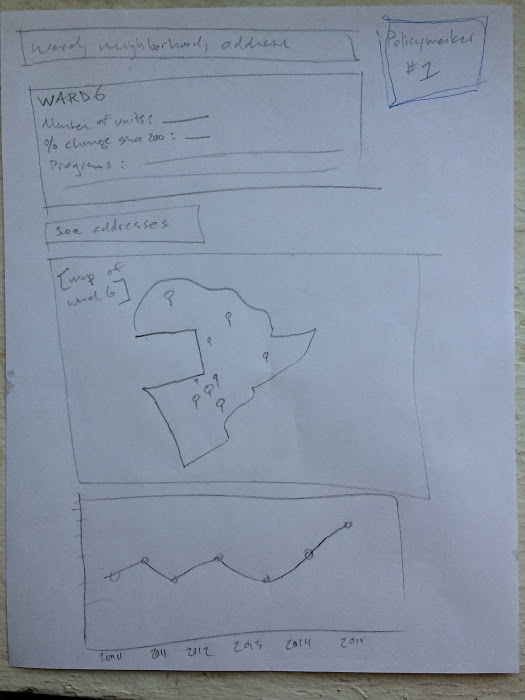 Ward, neighborhood, address
Policymaker
#1
WARD 6
Number of units:
% change since 200:
Programs:
See addresses
[map of
ward 6]
2010 2011 2012 2013 2014 2015